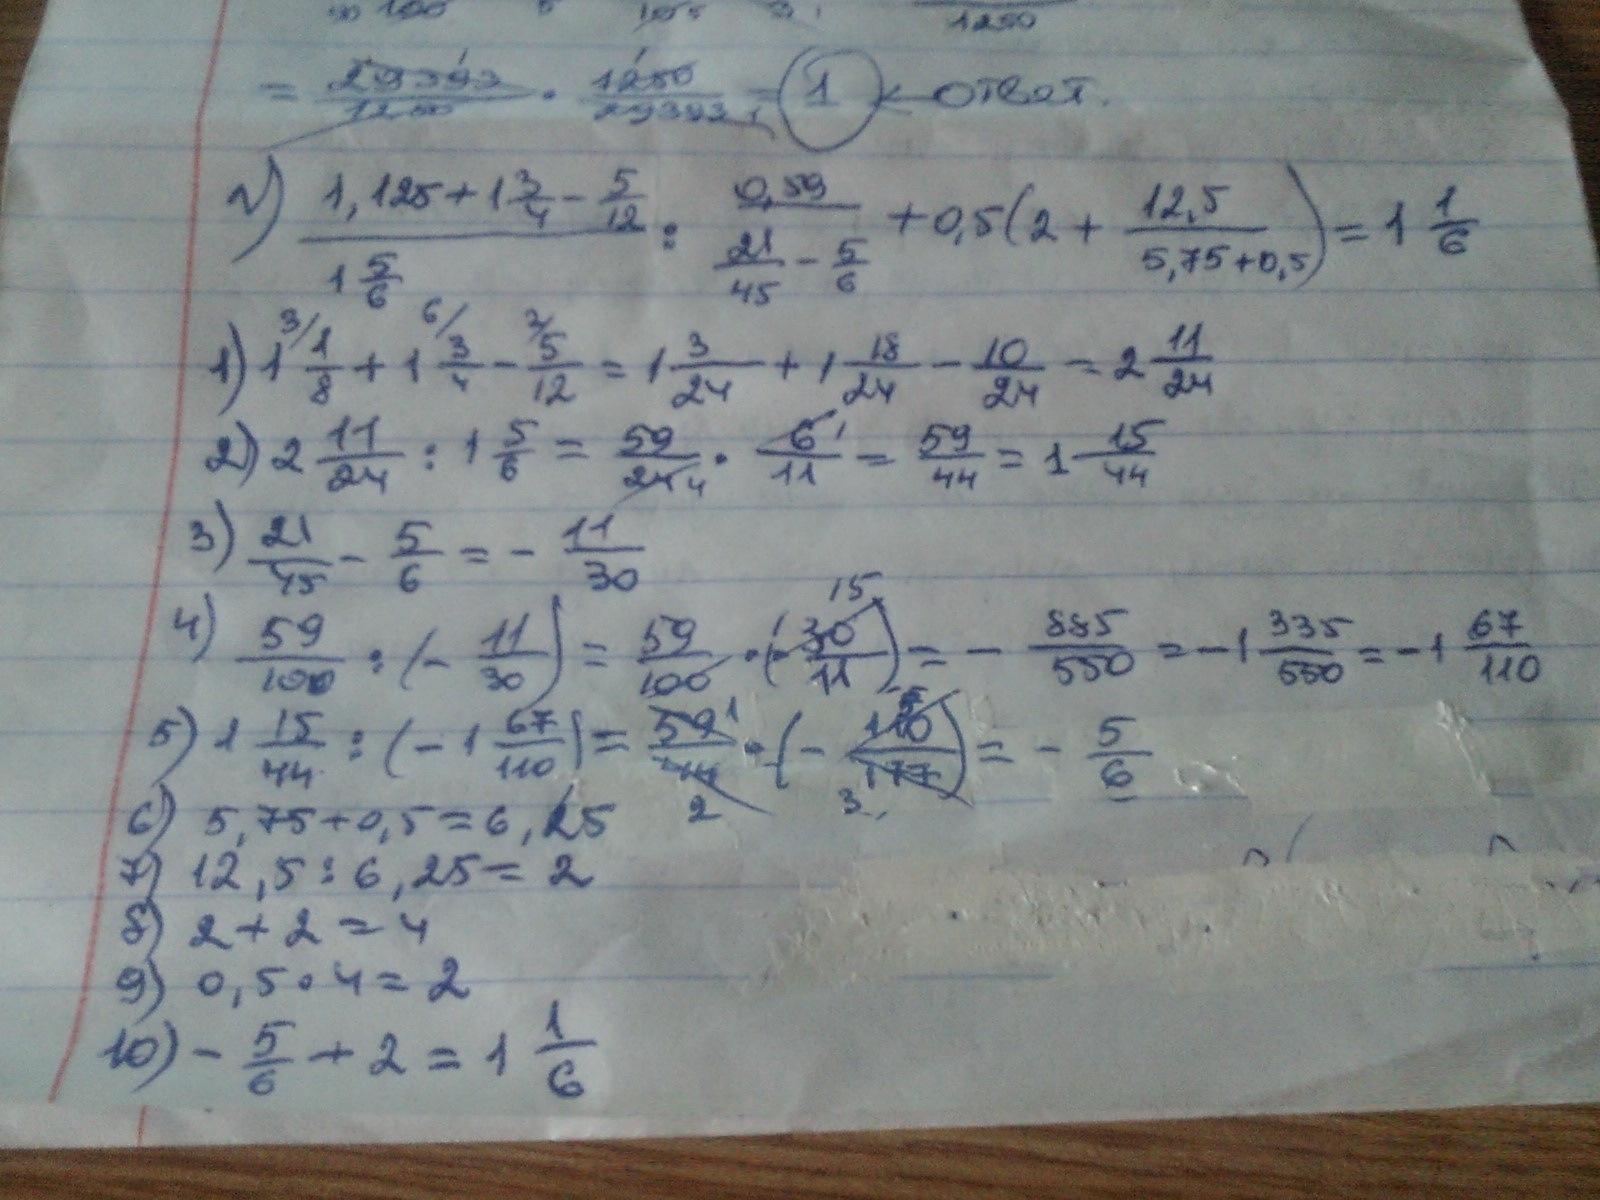 1250
= 29393/1250 · 1250/29393 = 1 ← ответ.
г) (1,125 + 1 3/4 - 5/12)/(1 5/6) : 0,59/(21/45 - 5/6) + 0,5(2 + 12,5/(5,75+0,5)) = 1 1/6
1) 1 1/8 + 1 3/4 - 5/12 = 1 3/24 + 1 18/24 - 10/24 = 2 11/24
2) 2 11/24 : 1 5/6 = 59/24 · 6/11 = 59/44 = 1 15/44
3) 21/45 - 5/6 = - 11/30
4) 59/100 : (- 11/30) = 59/100 · (- 30/11) = - 885/550 = -1 335/550 = -1 67/110
5) 1 15/44 : (-1 67/110) = 59/44 · (- 110/177) = - 5/6
6) 5,75+0,5=6,25
7) 12,5:6,25=2
8) 2+2=4
9) 0,5·4=2
10) - 5/6 + 2 = 1 1/6